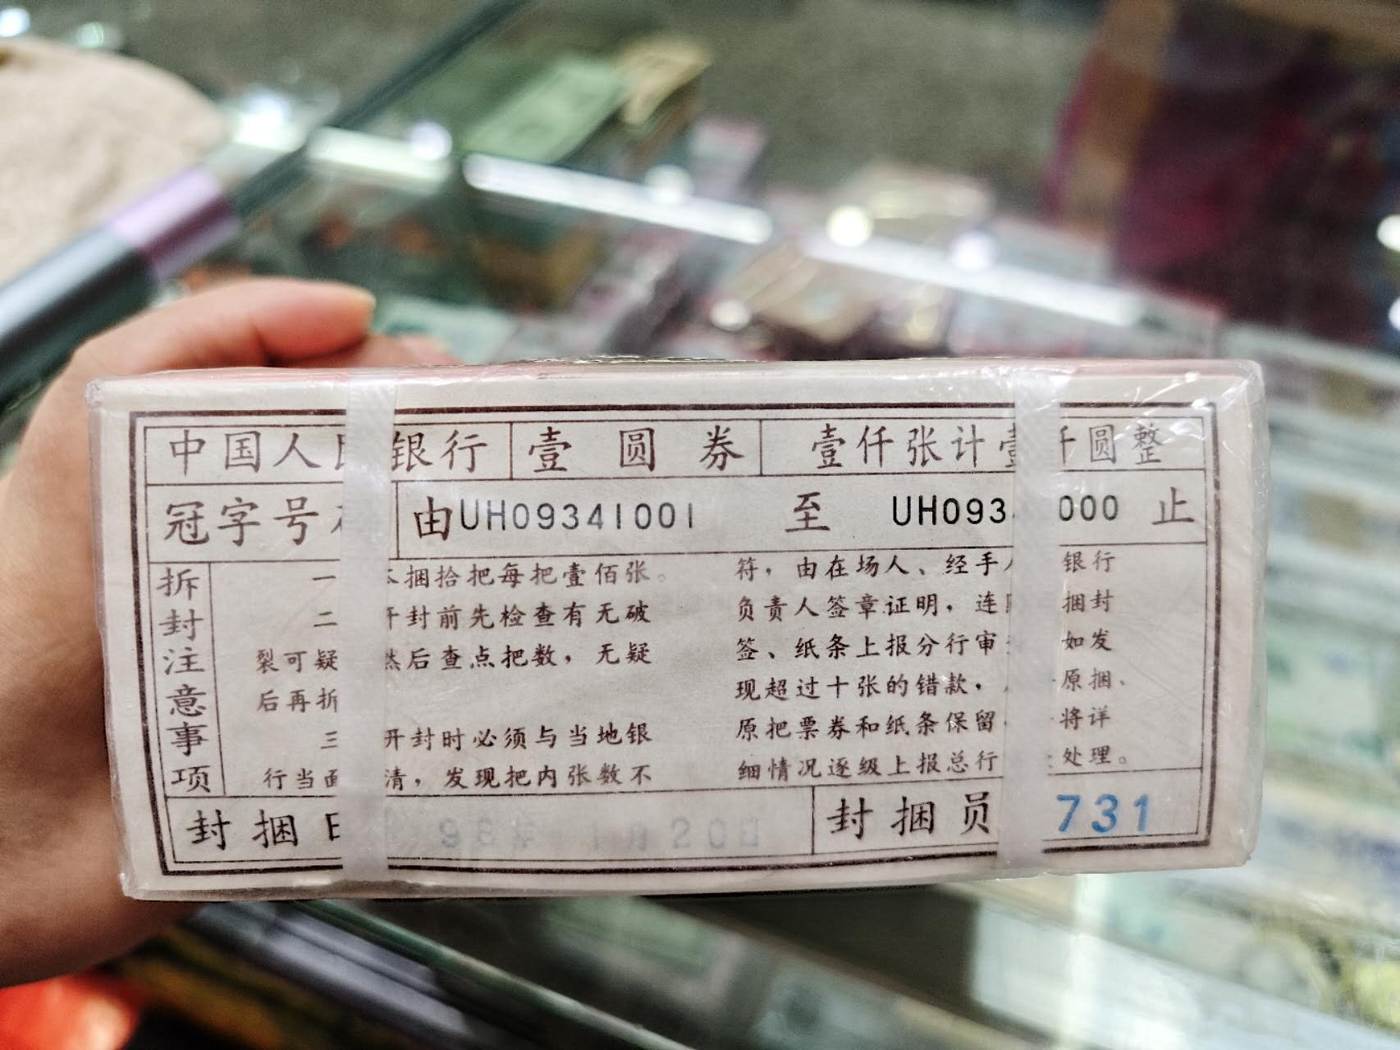 中国人民银行 壹圆券 壹仟张计壹仟圆整
冠字号 由UH09341001 至 UH093 000 止
拆封注意事项
一 本捆拾把每把壹佰张。
二 开封前先检查有无破
裂可疑 然后查点把数，无疑
后再拆
三 开封时必须与当地银
行当面 清，发现把内张数不
符，由在场人、经手人 银行
负责人签章证明，连 捆封
签、纸条上报分行审 如发
现超过十张的错款， 原捆、
原把票券和纸条保留 将详
细情况逐级上报总行 处理。
封捆日 1月20日
封捆员 731